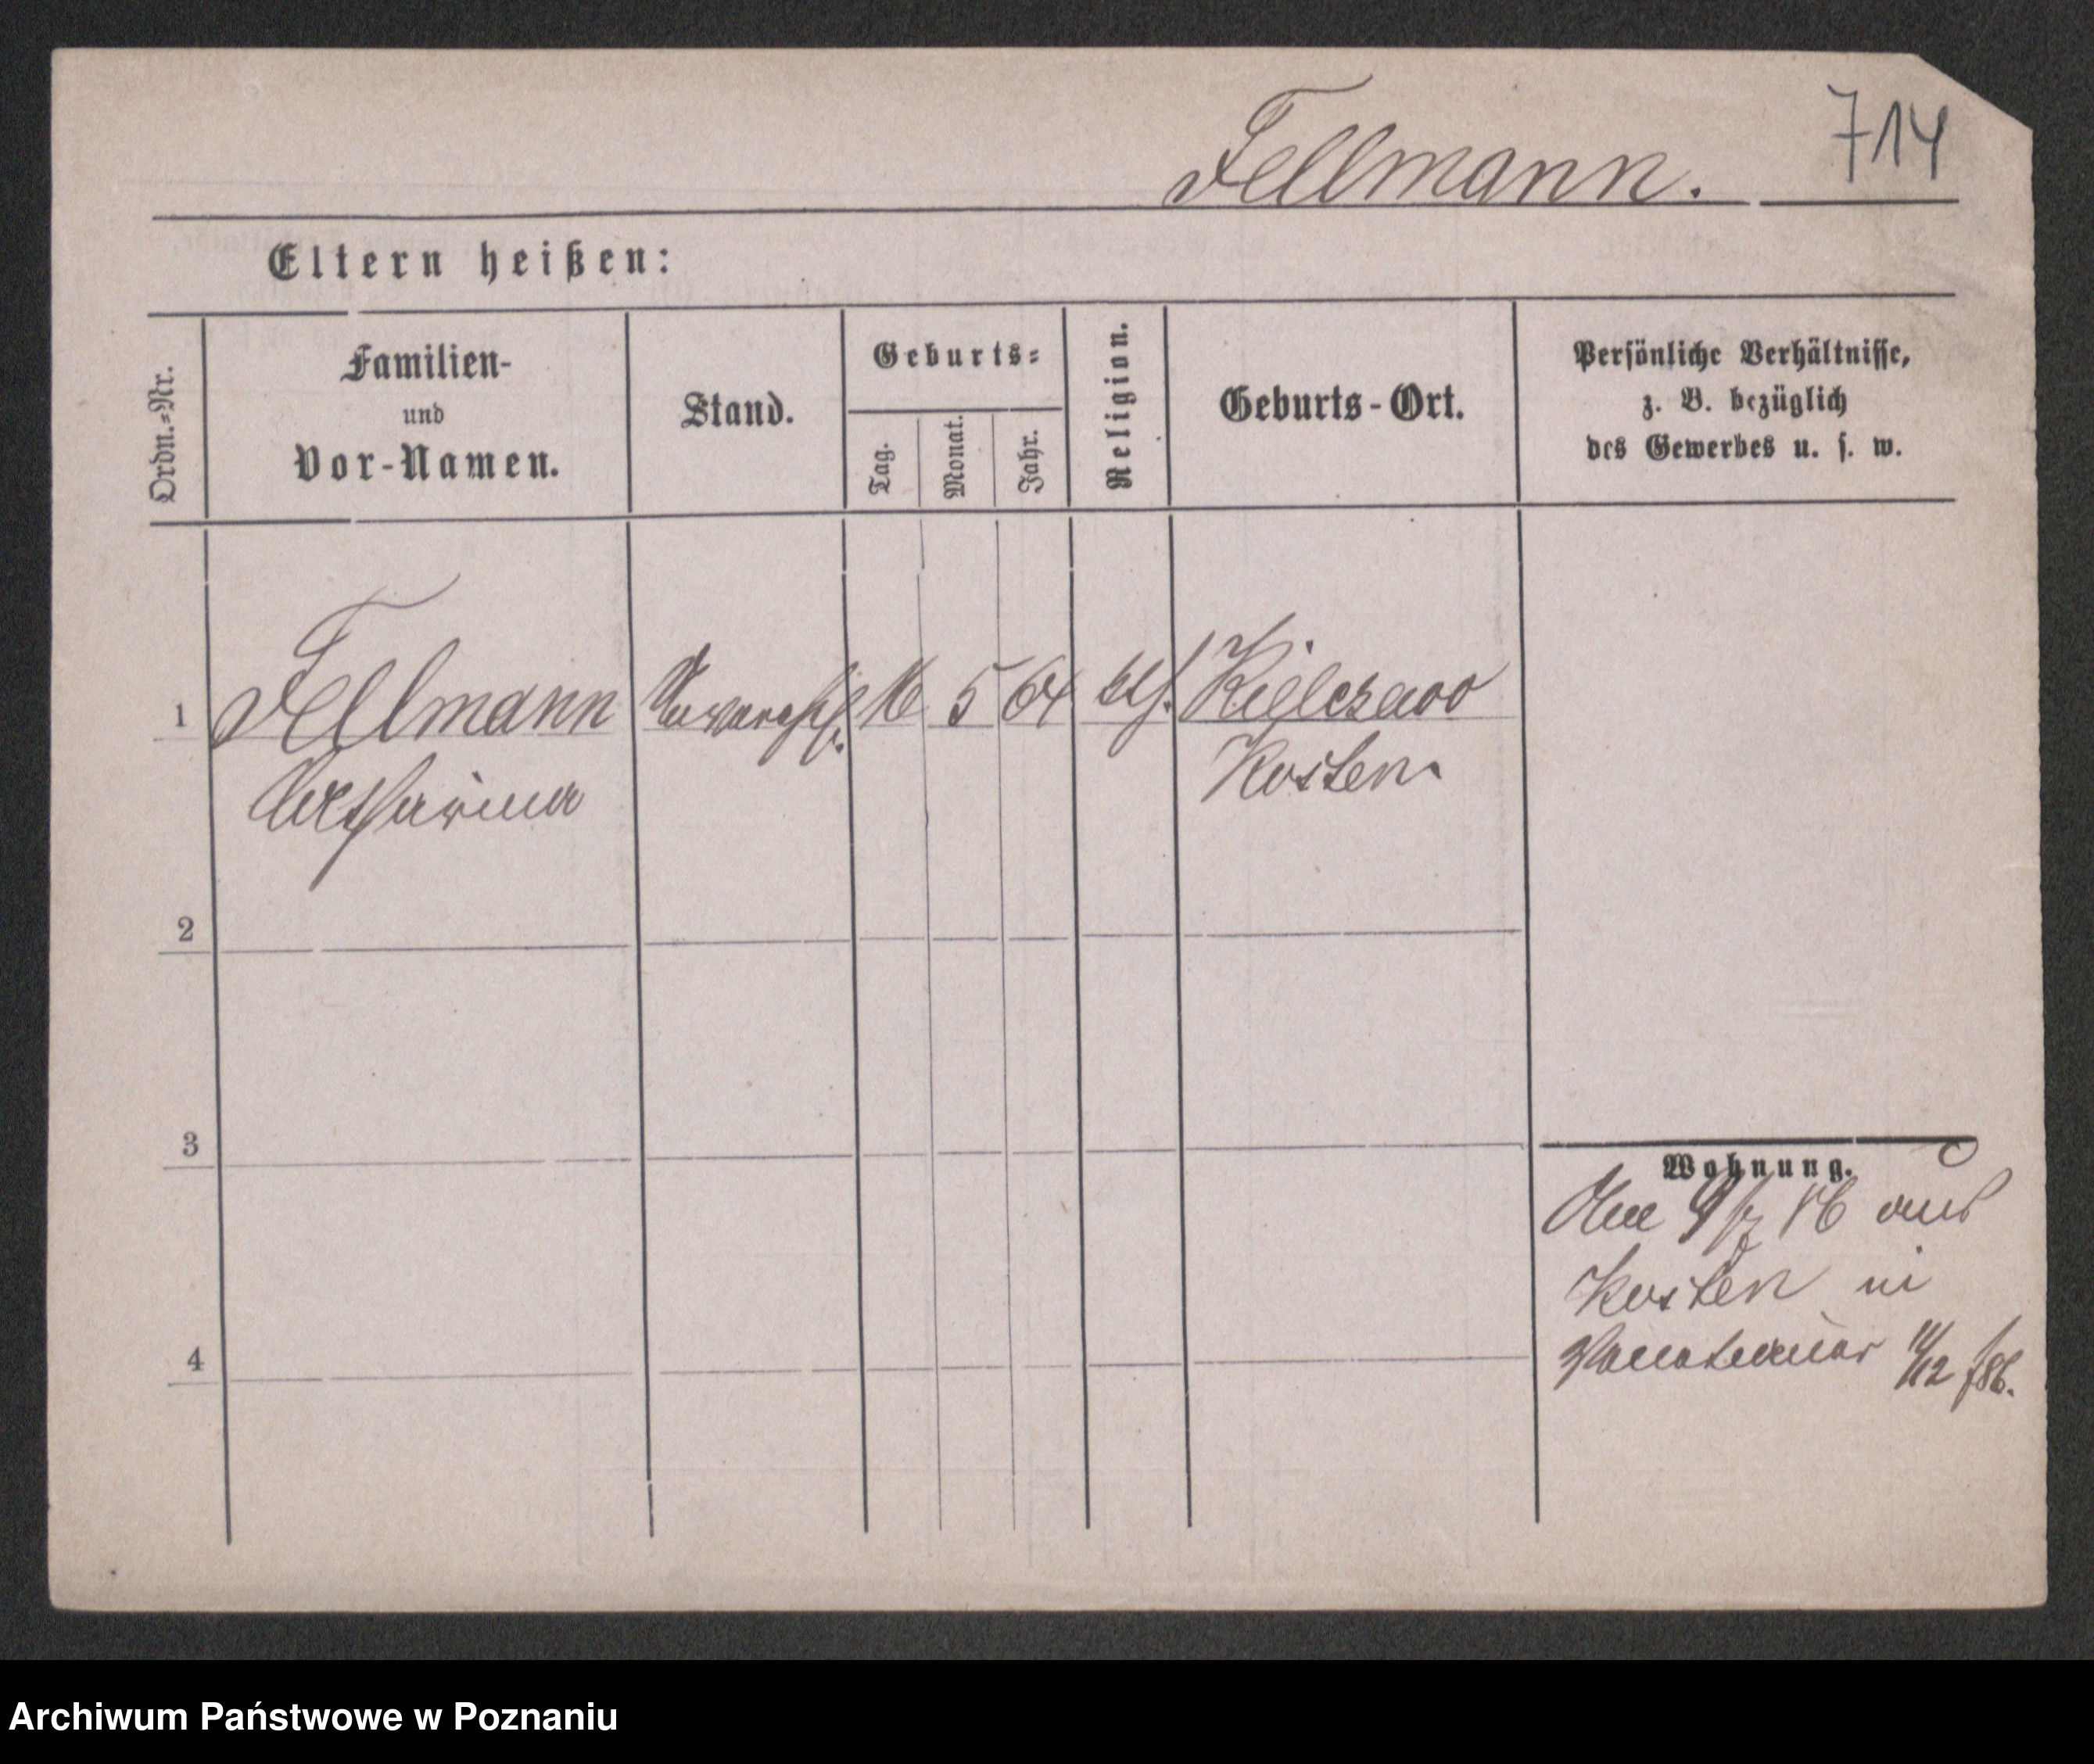 Fellmann. 714
Eltern heißen:
Ordn.-Nr.
Familien-
und
Vor-Namen.
Stand.
Geburts-
Tag.
Monat.
Jahr.
Religion.
Geburts-Ort.
Persönliche Verhältnisse,
z. B. bezüglich
des Gewerbes u. s. w.
1 Fellmann 16 5 64 Kielczewo
Catharina Kosten.
2
3
Wohnung.
86 aus
Kosten in
4
11/12 86.
Archiwum Państwowe w Poznaniu